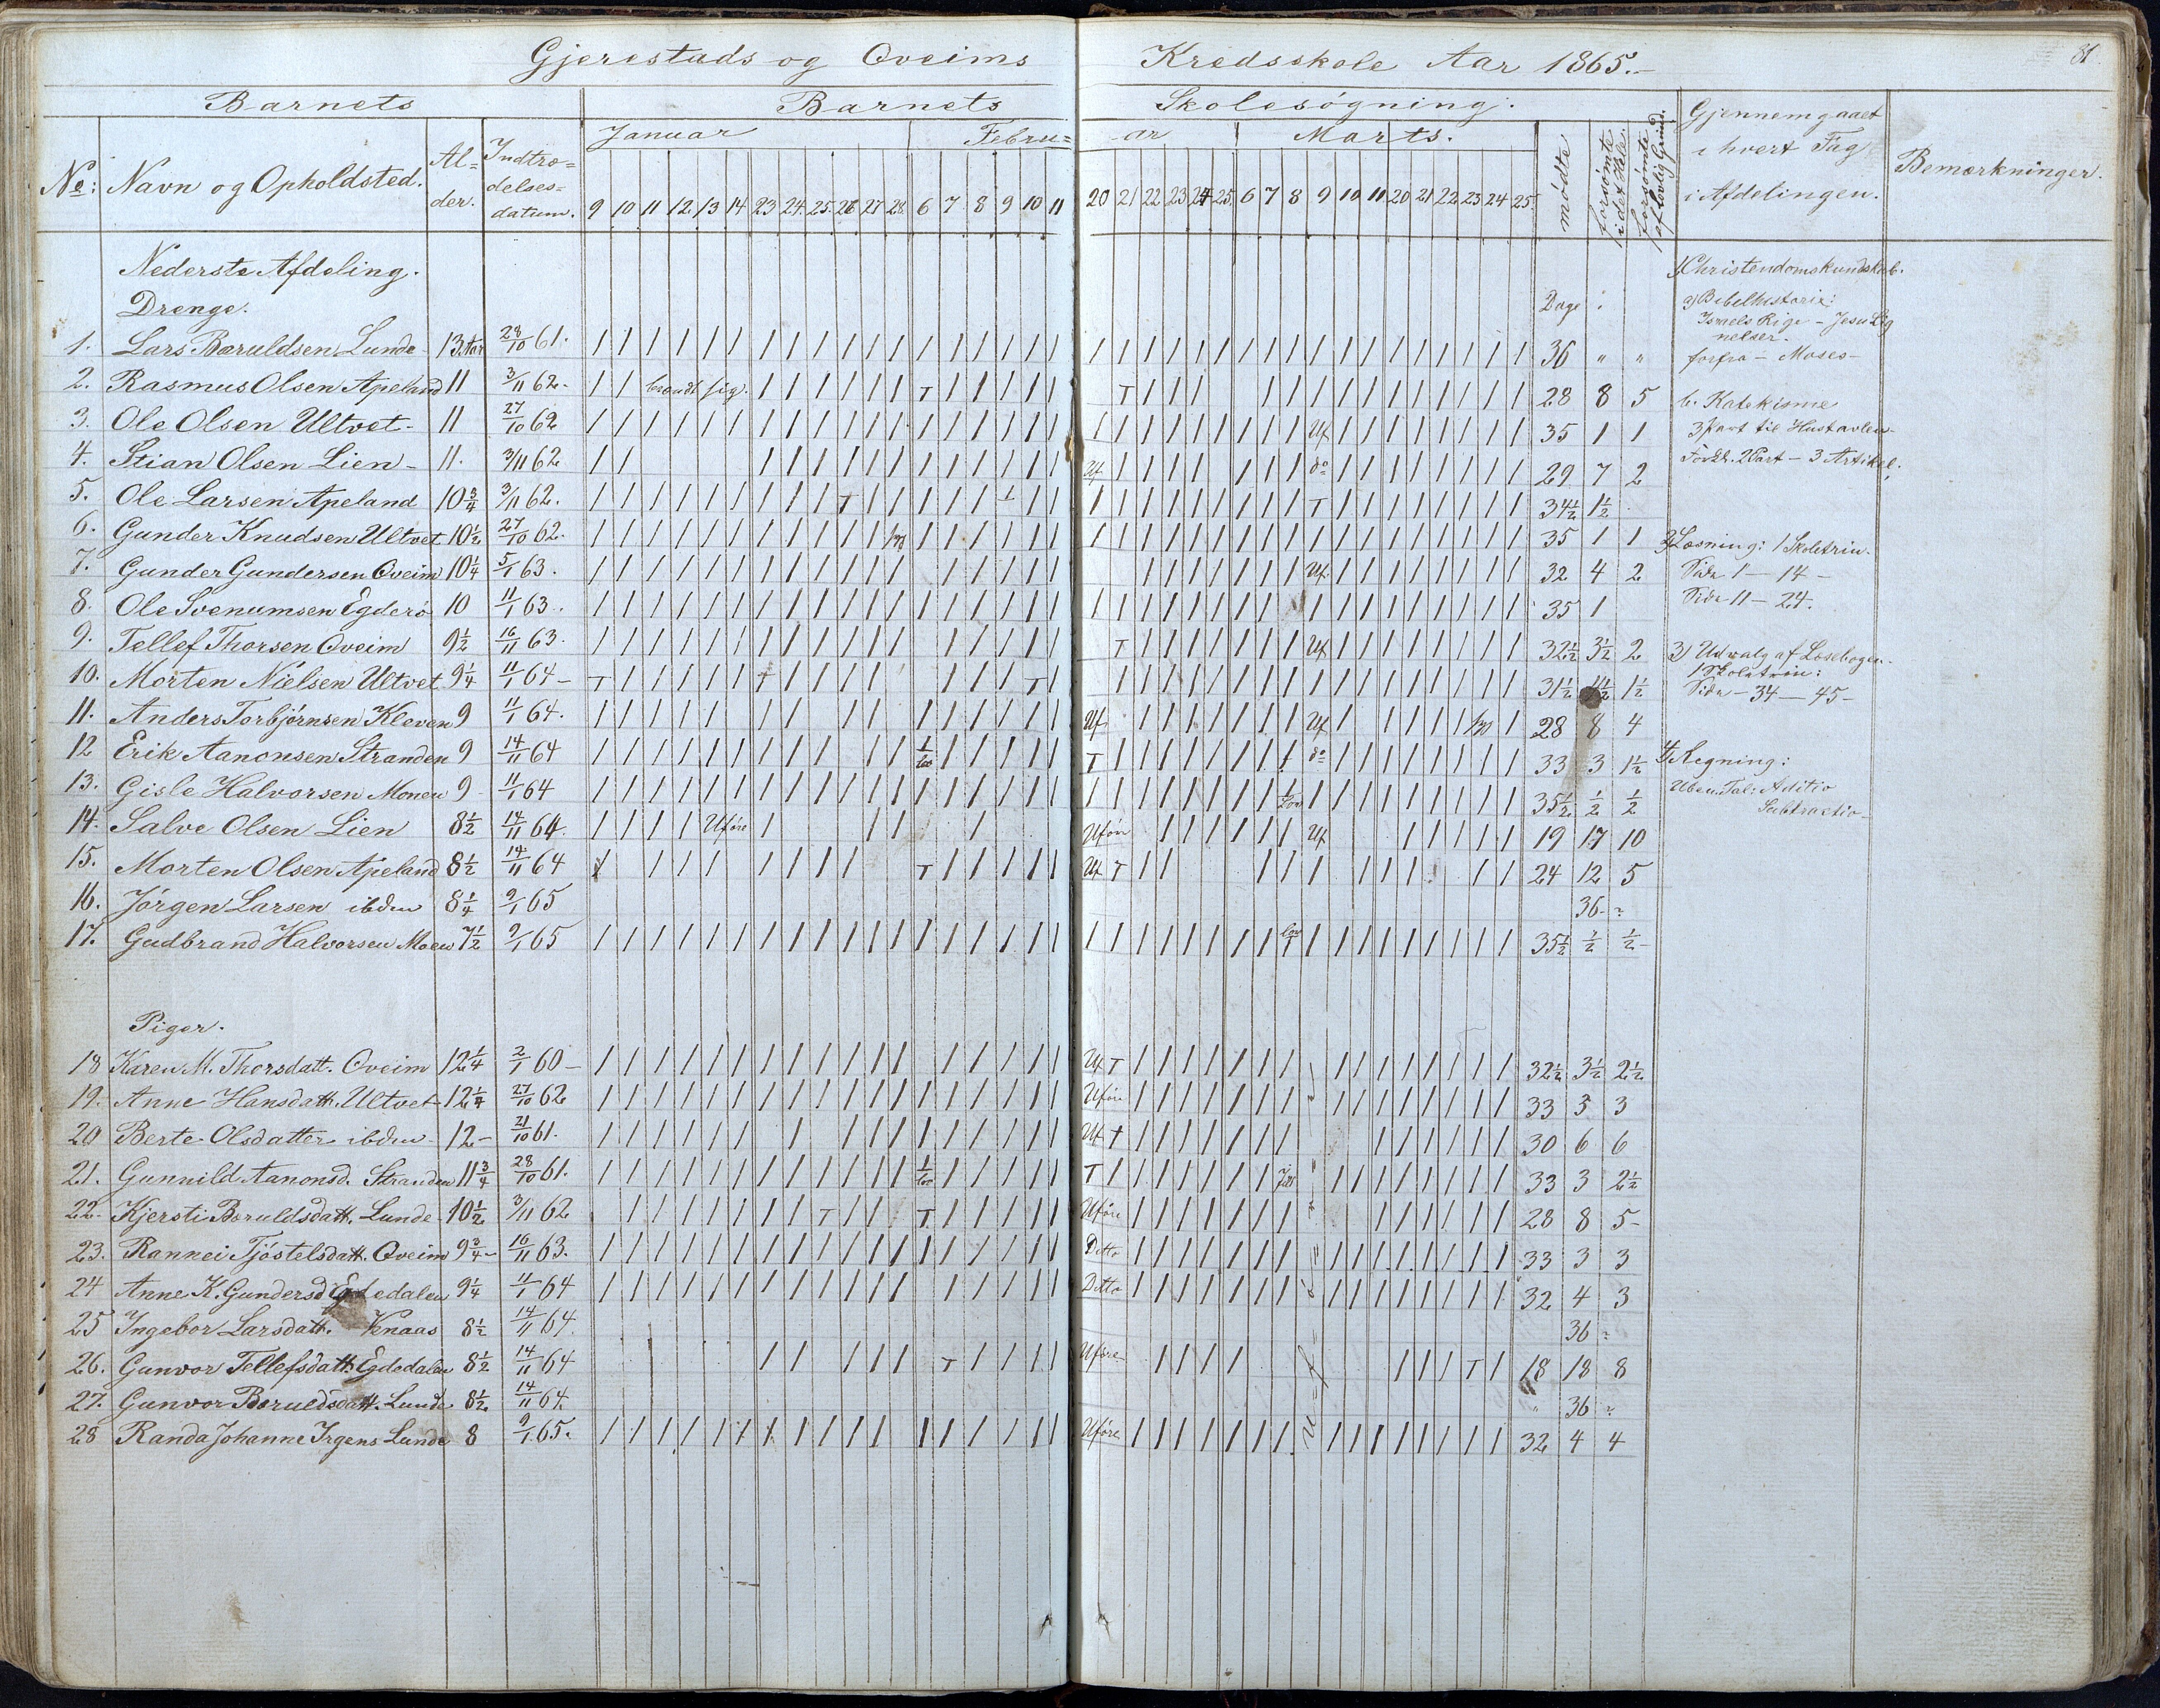 Gjerestads og Oveims Kredsskole Aar 1865.-
81.
Barnets Barnets Skolesøgning.
No: Navn og Opholdsted. Al=der. Indtræ=delses=datum. Januar Febru=ar Marts. mødte forsømte i det Hele. forsømte af lovlig Grund. Gjennemgaaet i hvert Fag i Afdelingen. Bemærkninger.
9 10 11 12 13 14 23 24 25 26 27 28 6 7 8 9 10 11 20 21 22 23 24 25 6 7 8 9 10 11 20 21 22 23 24 25
Nederste Afdeling.
Drenge. Dage
1. Lars Baruldsen Lunde 13 Aar 28/10 61. 36 " "
2. Rasmus Olsen Apeland 11 3/11 62. brændt sig. T T 28 8 5
3. Ole Olsen Ultvet 11 27/10 62 Uf 35 1 1
4. Stian Olsen Lien 11. 3/11 62 Uf do 29 7 2
5. Ole Larsen Apeland 10 3/4 3/11 62. T T 34 1/2 1 1/2
6. Gunder Knudsen Ultvet 10 1/2 27/10 62. 35 1 1
7. Gunder Gundersen Oveim 10 1/4 5/1 63. Uf. 32 4 2
8. Ole Svenumsen Egderø 10 11/1 63. 35 1
9. Tellef Thorsen Oveim 9 1/2 16/11 63. T Uf 32 1/2 3 1/2 2
10. Morten Nielsen Ultvet 9 1/4 11/1 64 T T 31 1/2 4 1/2 1 1/2
11. Anders Torbjørnsen Kleven 9 11/1 64. Uf Uf 28 8 4
12 Erik Aanonsen Stranden 9 14/11 64 T do 33 3 1 1/2
13. Gisle Halvorsen Monen 9 11/1 64 35 1/2 1/2 1/2
14. Salve Olsen Lien 8 1/2 14/11 64. Uføre Uføre Uf 19 17 10
15. Morten Olsen Apeland 8 1/2 14/11 64 T Uf T 24 12 5
16. Jørgen Larsen ibden 8 1/4 9/1 65 36
17. Gudbrand Halvorsen Moen 7 1/2 9/1 65 35 1/2 1/2 1/2
Piger.
18 Karen M. Thorsdatt. Oveim 12 1/4 2/1 60 Uf T 32 1/2 3 1/2 2 1/2
19. Anne Hansdatt. Ultvet 12 1/4 27/10 62 Uføre 33 3 3
20 Berte Olsdatter ibden 12 21/10 61. Uf T 30 6 6
21. Gunnild Aanonsd. Stranden 11 3/4 28/10 61. T 33 3 2 1/2
22. Kjersti Baruldsdatt. Lunde 10 1/2 3/11 62 T T Uføre 28 8 5
23. Rannei Tjøstelsdatt. Oveim 9 3/4 16/11 63. Ditto 33 3 3
24 Anne K. Gundersd Egdedalen 9 1/4 11/1 64 Ditto 32 4 3
25 Ingebor Larsdatt. Venaas 8 1/2 14/11 64. 36
26. Gunvor Tellefsdatt Egdedalen 8 1/2 14/11 64 T Uføre T 18 18 8
27. Gunvor Baruldsdatt. Lunde 8 1/2 14/11 64. " 36
28 Randa Johanne Irgens Lunde 8 9/1 65. Uføre 32 4 4
1) Christendomskundskab.
a) Bibelhistorie:
Israels Rige - Jesu Lig
nelser.
forfra - Moses -
b. Katekisme
3 Part til Hustavlen
Forkl. 2 Part - 3 Artikel.
2) Læsning: 1 Skoletrin.
Side 1 - 14 -
Side 11 - 24.
3) Udvalg af Læsebogen
1 Skoletrin:
Side - 34 - 45 -
4) Regning:
Uben. Tal: Aditio
Subtractio